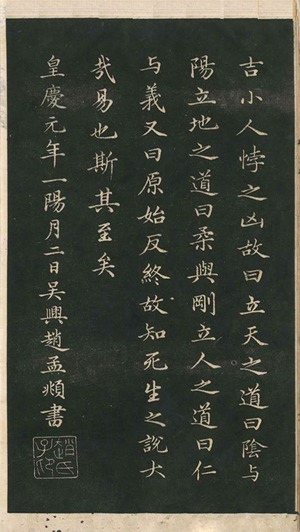 吉小人悖之凶故曰立天之道曰陰与
陽立地之道曰柔與剛立人之道曰仁
与義又曰原始反終故知死生之説大
哉易也斯其至矣
皇慶元年一陽月二日吳興趙孟頫書
趙氏子昂